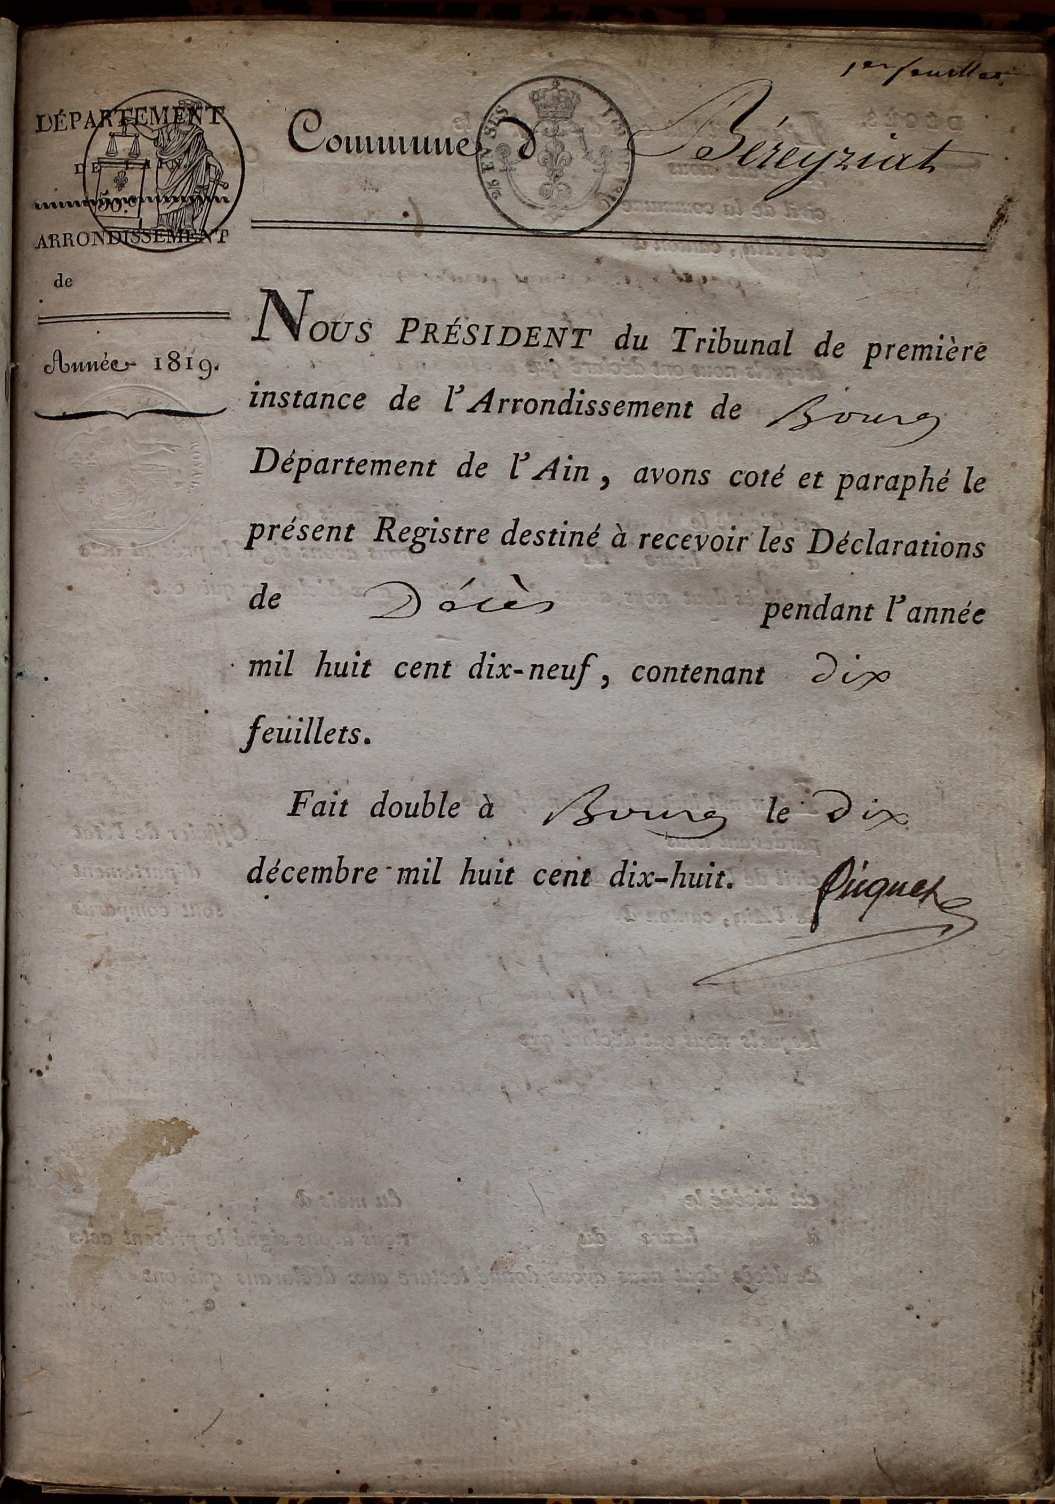 1er feuillet
DÉPARTEMENT
DE L'AIN
50.c
ARRONDISSEMENT
de
Année 1819.
Commune d Béreyziat
NOUS PRÉSIDENT du Tribunal de première
instance de l'Arrondissement de Bourg
Département de l'Ain, avons coté et paraphé le
présent Registre destiné à recevoir les Déclarations
de Décès pendant l'année
mil huit cent dix-neuf, contenant dix
feuillets.
Fait double à Bourg le dix
décembre mil huit cent dix-huit.
Piquet